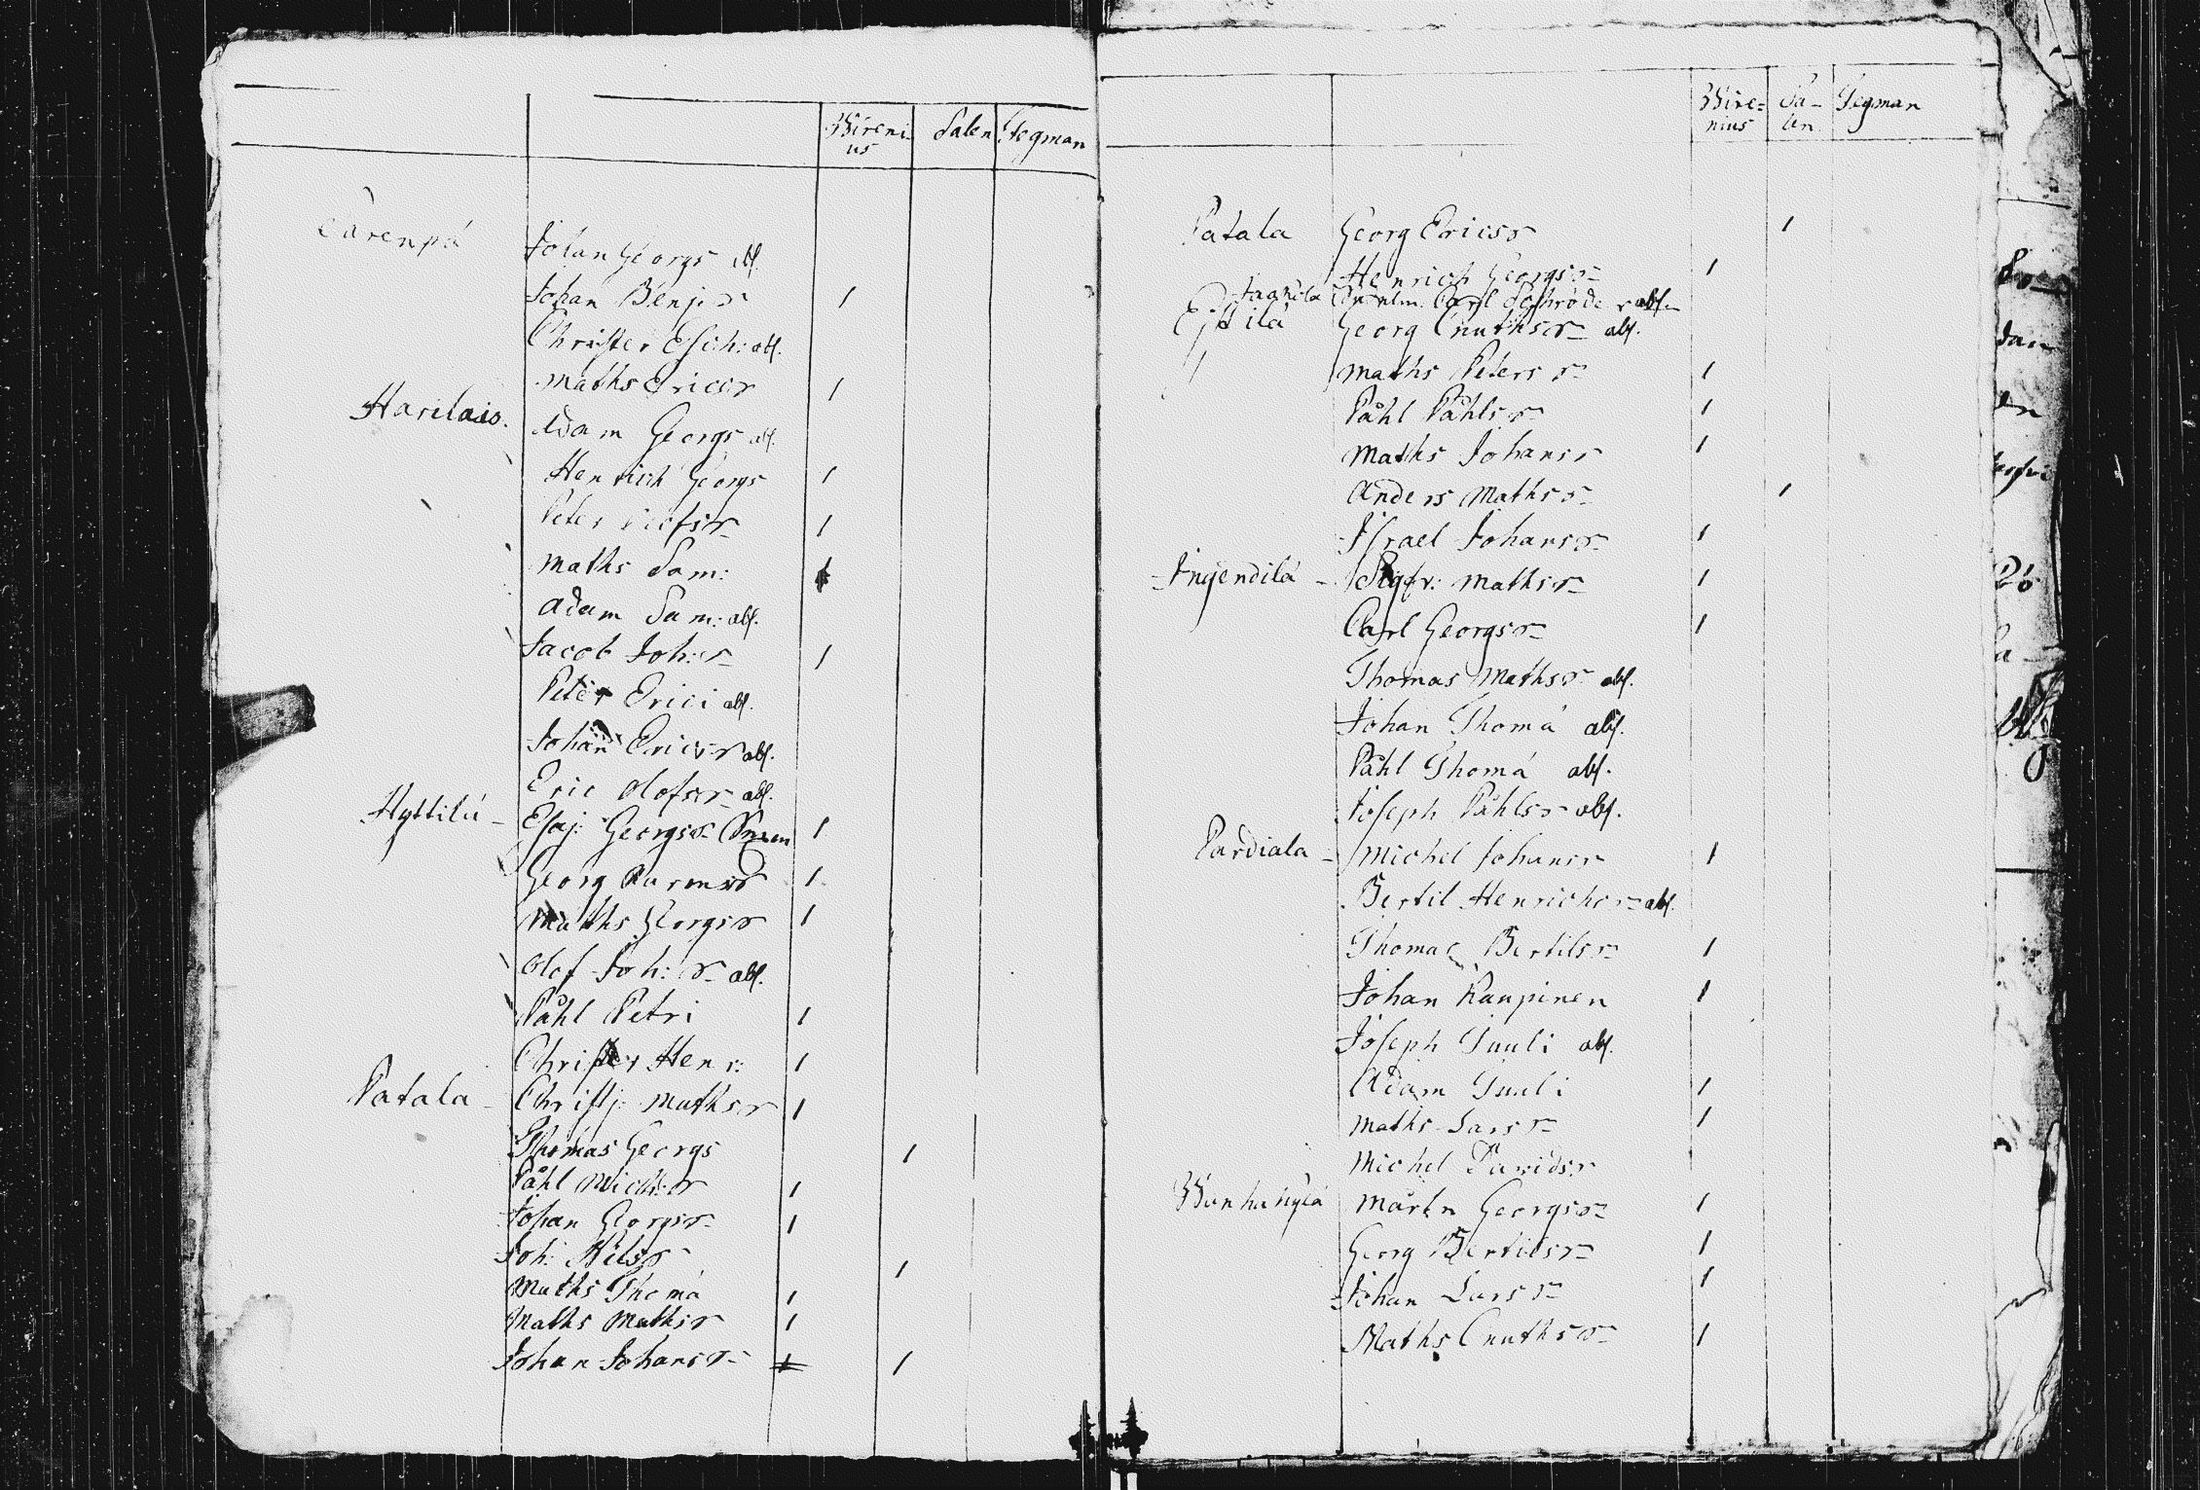 Wireni- Salen Stegman
us
Johan Georgs abs.
Johan Benj: sr
Christer Esch: abs.
Maths Ericsr
Harilais.
Adam Georgs abs.
Henrich Georgs
Peter Olofsr
Maths Sam:
Adam Sam: abs.
Jacob Joh: sr
Peter Erici abs.
Johan Ericsr abs.
Eric Olofsr abs.
Hyttilä - Esaj: Georgsr
Georg
Maths Georgsr
Olof Joh: sr abs.
Påhl Petri
Christer Henr:
Patala - Christj: Mathsr
Thomas Georgs
Påhl Mich: sr
Johan Georgsr
Joh: Nilsr
Maths Thomä
Maths Mathsr
Johan Johansr
Wire- Sa- Stegman
nius len
Patala Georg Ericsr
Henrich Georgsr
Carl Schröder abs.
Georg Cnuthsr abs.
Maths Petersr
Påhl Påhlsr
Maths Johansr
Anders Mathsr
Israel Johansr
Ingendilä - Sigfr: Mathsr
Carl Georgsr
Thomas Mathsr abs.
Johan Thomä abs.
Påhl Thomä abs.
Joseph Påhlsr abs.
Pardiala - Michel Johansr
Bertil Henrichsr abs.
Thomas Bertilsr
Johan Kaupinen
Joseph Tuuli abs.
Adam Tuuli
Maths Larsr
Michel Davidsr
Mårtn Georgsr
Georg Bertilsr
Johan Larssr
Maths Cnuthsr